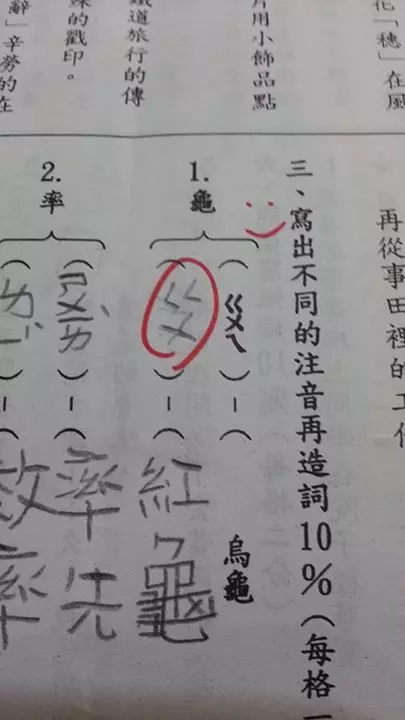 花「穗」在風
片用小飾品點
鐵道旅行的傳
的戳印。
辭」辛勞的在
再從事田裡的工作
三、寫出不同的注音再造詞10%(每格一
1.龜
(ㄍㄨㄟ)-(烏龜
(ㄍㄨ)-(紅龜
2.率
(ㄕㄨㄞˋ)-(率先
( )-(效率